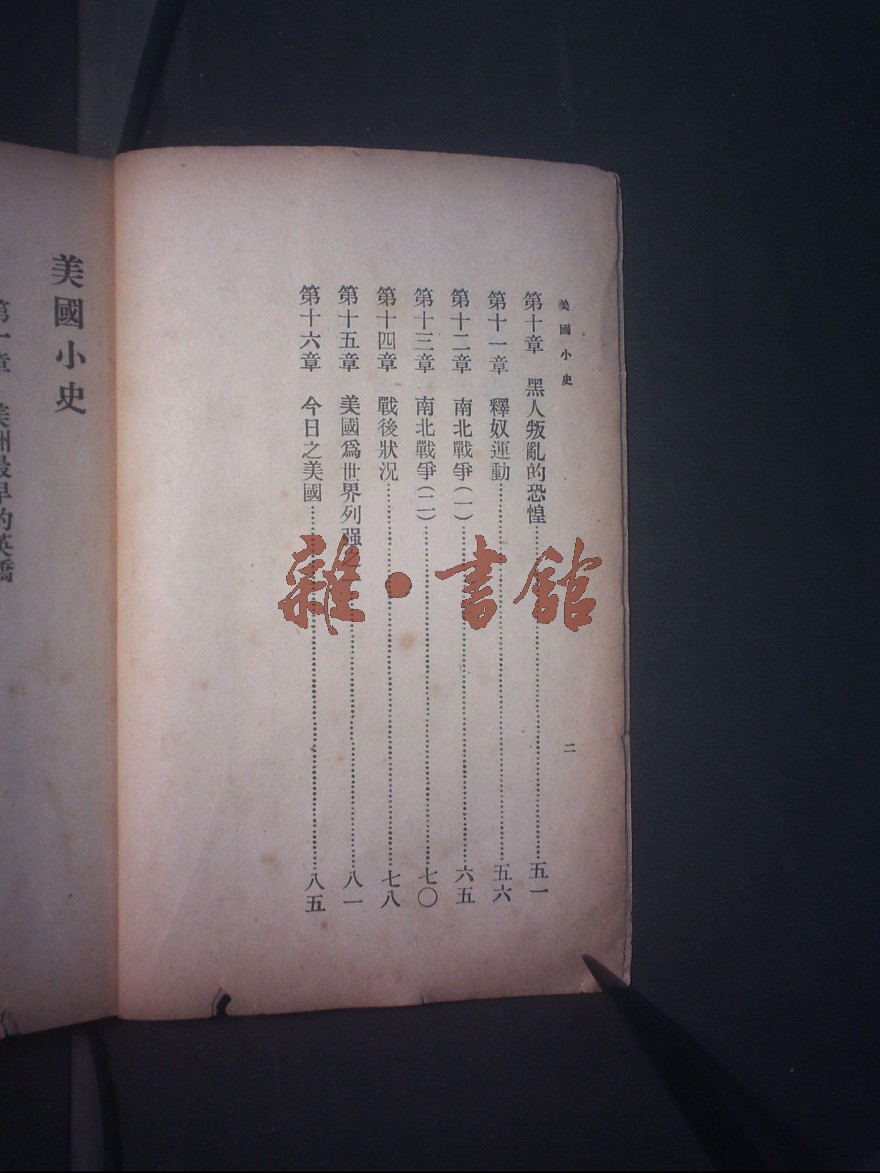 美國小史
第十章　黑人叛亂的恐惶……五一
第十一章　釋奴運動……五六
第十二章　南北戰爭(一)……六五
第十三章　南北戰爭(二)……七〇
第十四章　戰後狀況……七八
第十五章　美國爲世界列强之……八一
第十六章　今日之美國……八五
二
美國小史
第一章　美洲最早的英僑
雜·書館